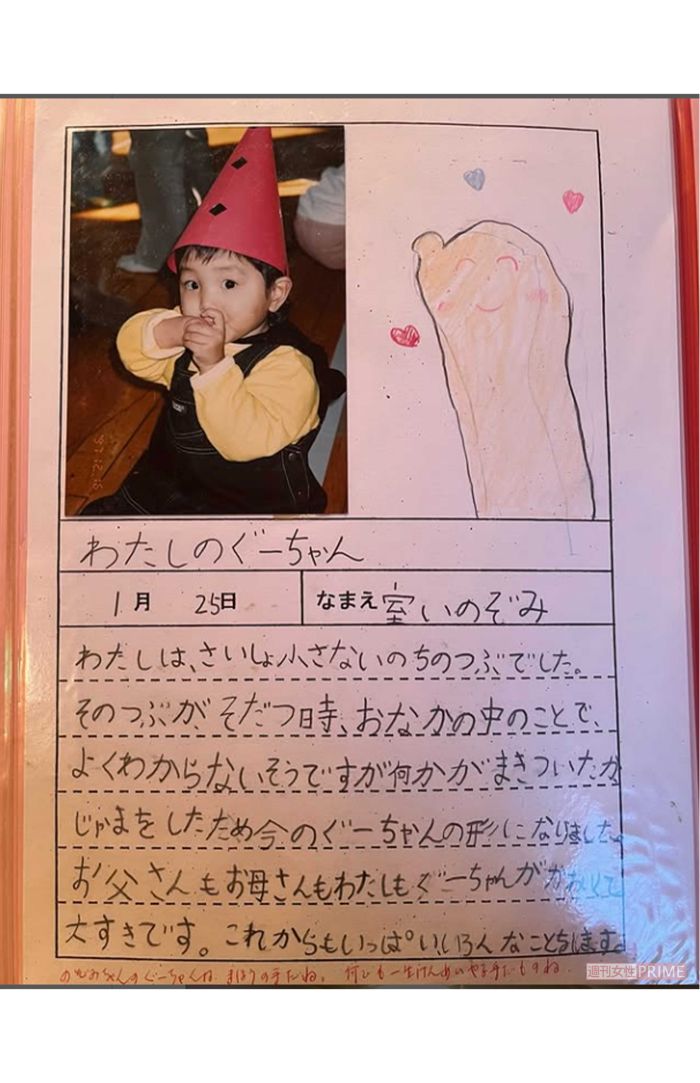 わたしのぐーちゃん
1月 25日 なまえ 室いのぞみ
わたしは、さいしょ小さないのちのつぶでした。
そのつぶが、そだつ時、おなかの中のことで、
よくわからないそうですが何かがまきついたか
じゃまをしたため今のぐーちゃんの形になりました。
お父さんもお母さんもわたしもぐーちゃんがかわいくて
大すきです。これからもいっぱいいろんなことをします。
のぞみちゃんのぐーちゃんは、まほうの手だね。何でも一生けんめいやる手だものね。
週刊女性PRIME